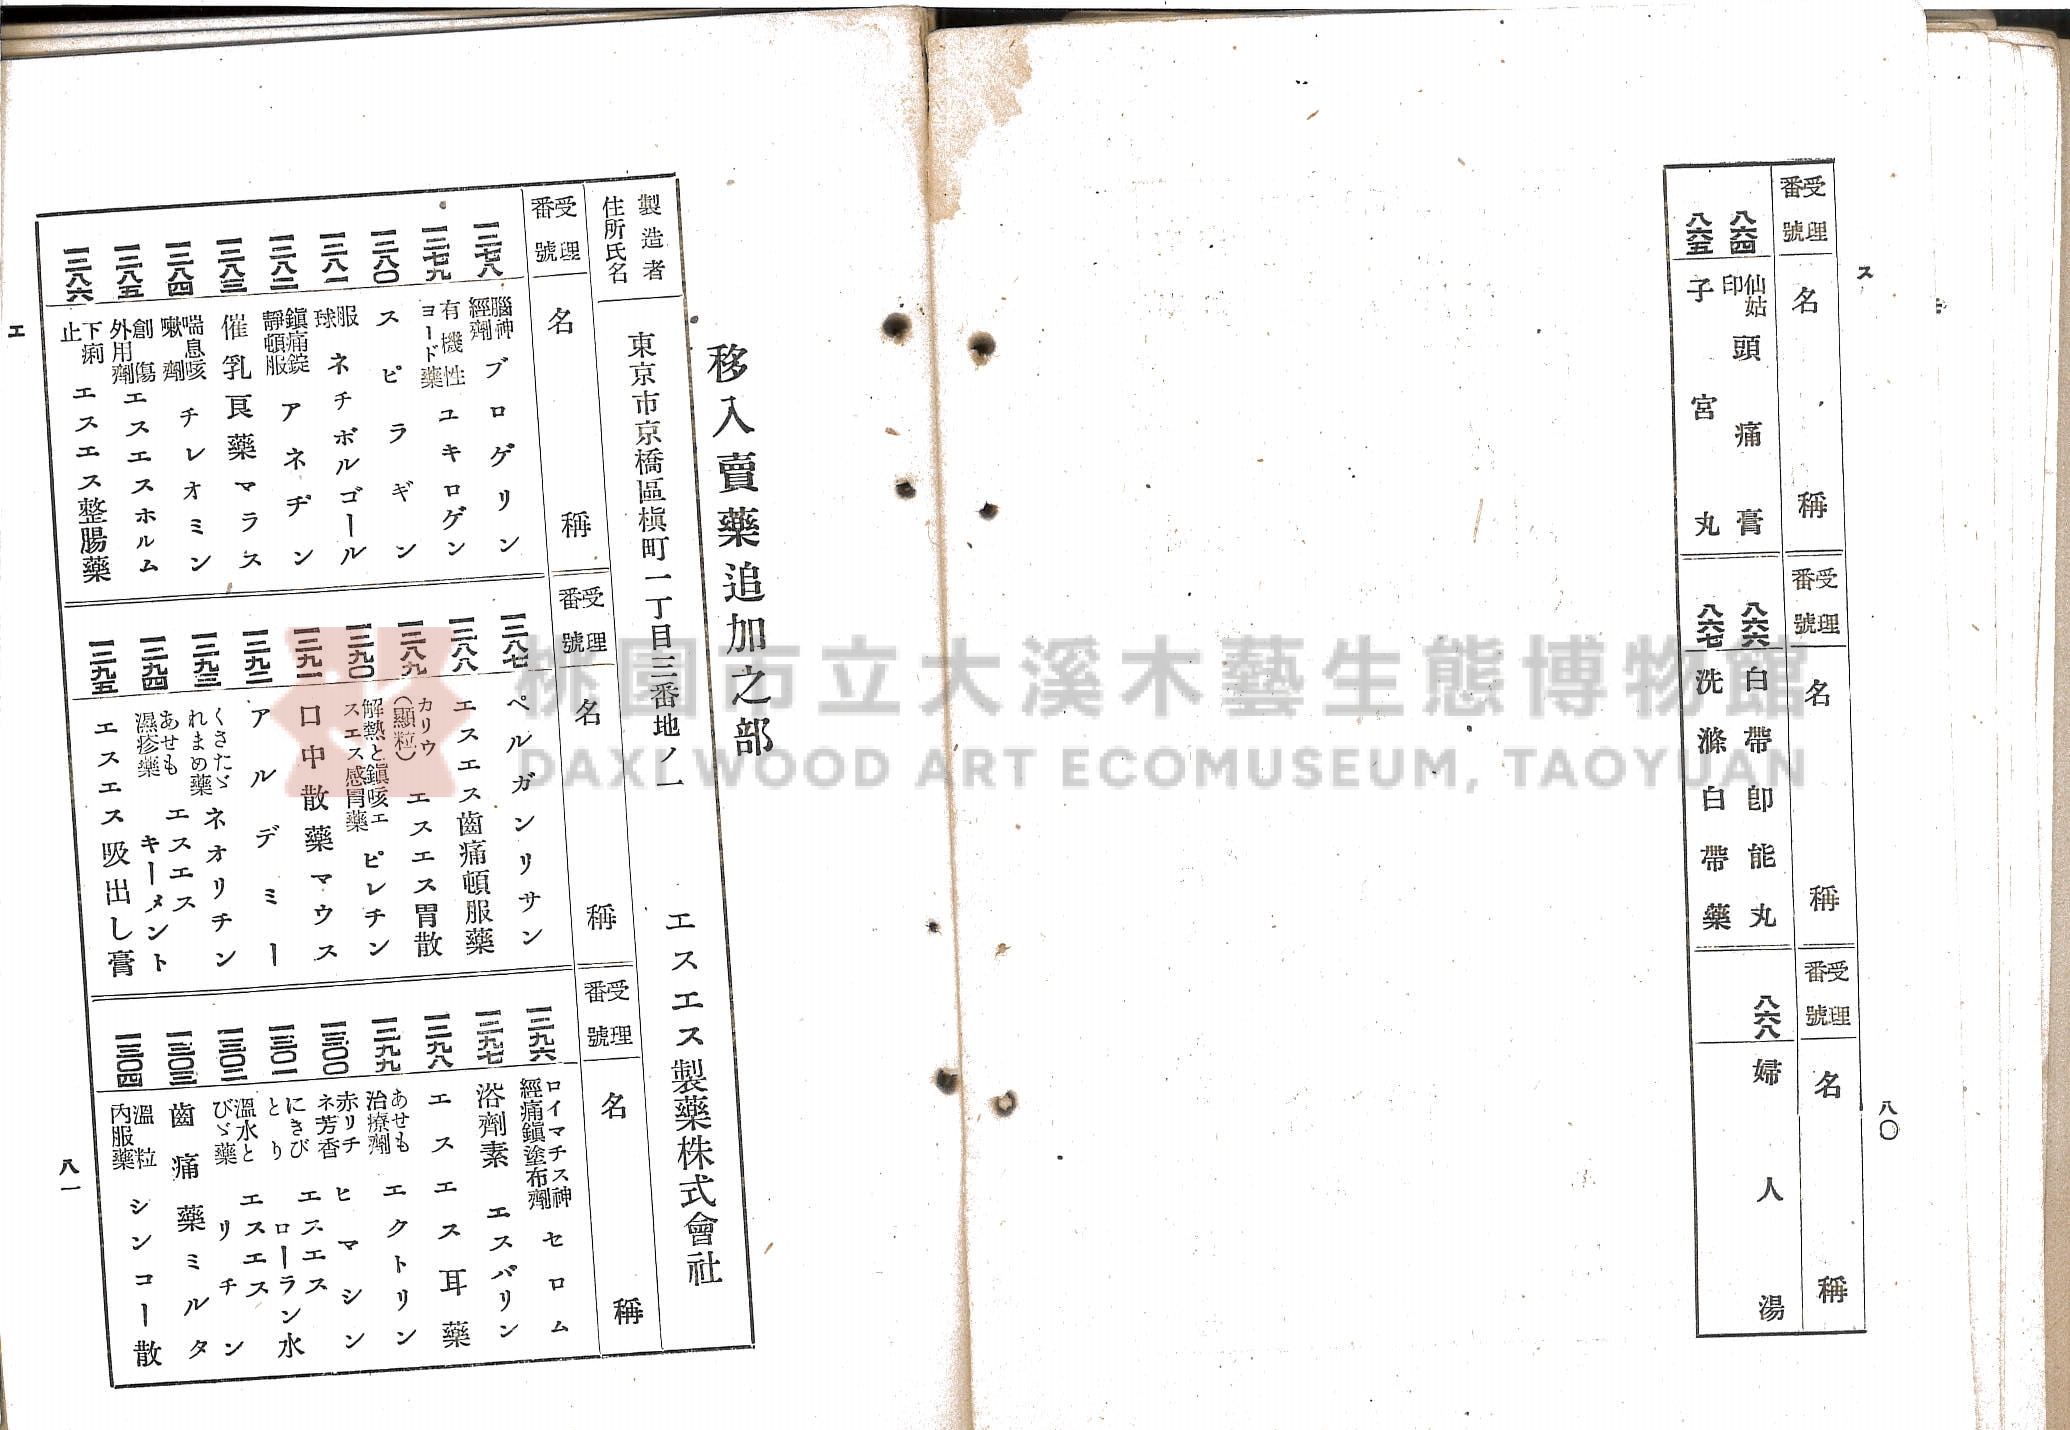 ス
八〇
受理番號
名稱
八六四 仙姑印 頭痛膏
八六五 子宮丸
受理番號
名稱
八六六 白帶卽能丸
八六七 洗滌白帶藥
受理番號
名稱
八六八 婦人湯
移入賣藥追加之部
製造者住所氏名 東京市京橋區槇町一丁目三番地ノ一 エスエス製藥株式會社
受理番號
名稱
一二七八 腦神經劑 ブロゲリン
一二七九 有機性ヨード藥 ユキロゲン
一二八〇 スピラギン
一二八一 服球 ネチボルゴール
一二八二 鎭痛錠靜頓服 アネヂン
一二八三 催乳良藥マラス
一二八四 喘息咳嗽劑 チレオミン
一二八五 創傷外用劑 エスエスホルム
一二八六 下痢止 エスエス整腸藥
受理番號
名稱
一二八七 ペルガンリサン
一二八八 エスエス齒痛頓服藥
一二八九 カリウ(顯粒) エスエス胃散
一二九〇 解熱と鎭咳エスエス感冒藥 ピレチン
一二九一 口中散藥マウス
一二九二 アルデミー
一二九三 くさたゞれまめ藥 ネオリチン
一二九四 あせも濕疹藥 エスエスキーメント
一二九五 エスエス吸出し膏
受理番號
名稱
一二九六 ロイマチス神經痛鎭塗布劑 セロム
一二九七 浴劑素 エスバリン
一二九八 エスエス耳藥
一二九九 あせも治療劑 エクトリン
一三〇〇 赤リチネ芳香 ヒマシン
一三〇一 にきびとり エスエスローラン水
一三〇二 溫水とびゞ藥 エスエスリチン
一三〇三 齒痛藥ミルタ
一三〇四 溫粒內服藥 シンコー散
エ
八一
桃園市立大溪木藝生態博物館
DAXI WOOD ART ECOMUSEUM, TAOYUAN